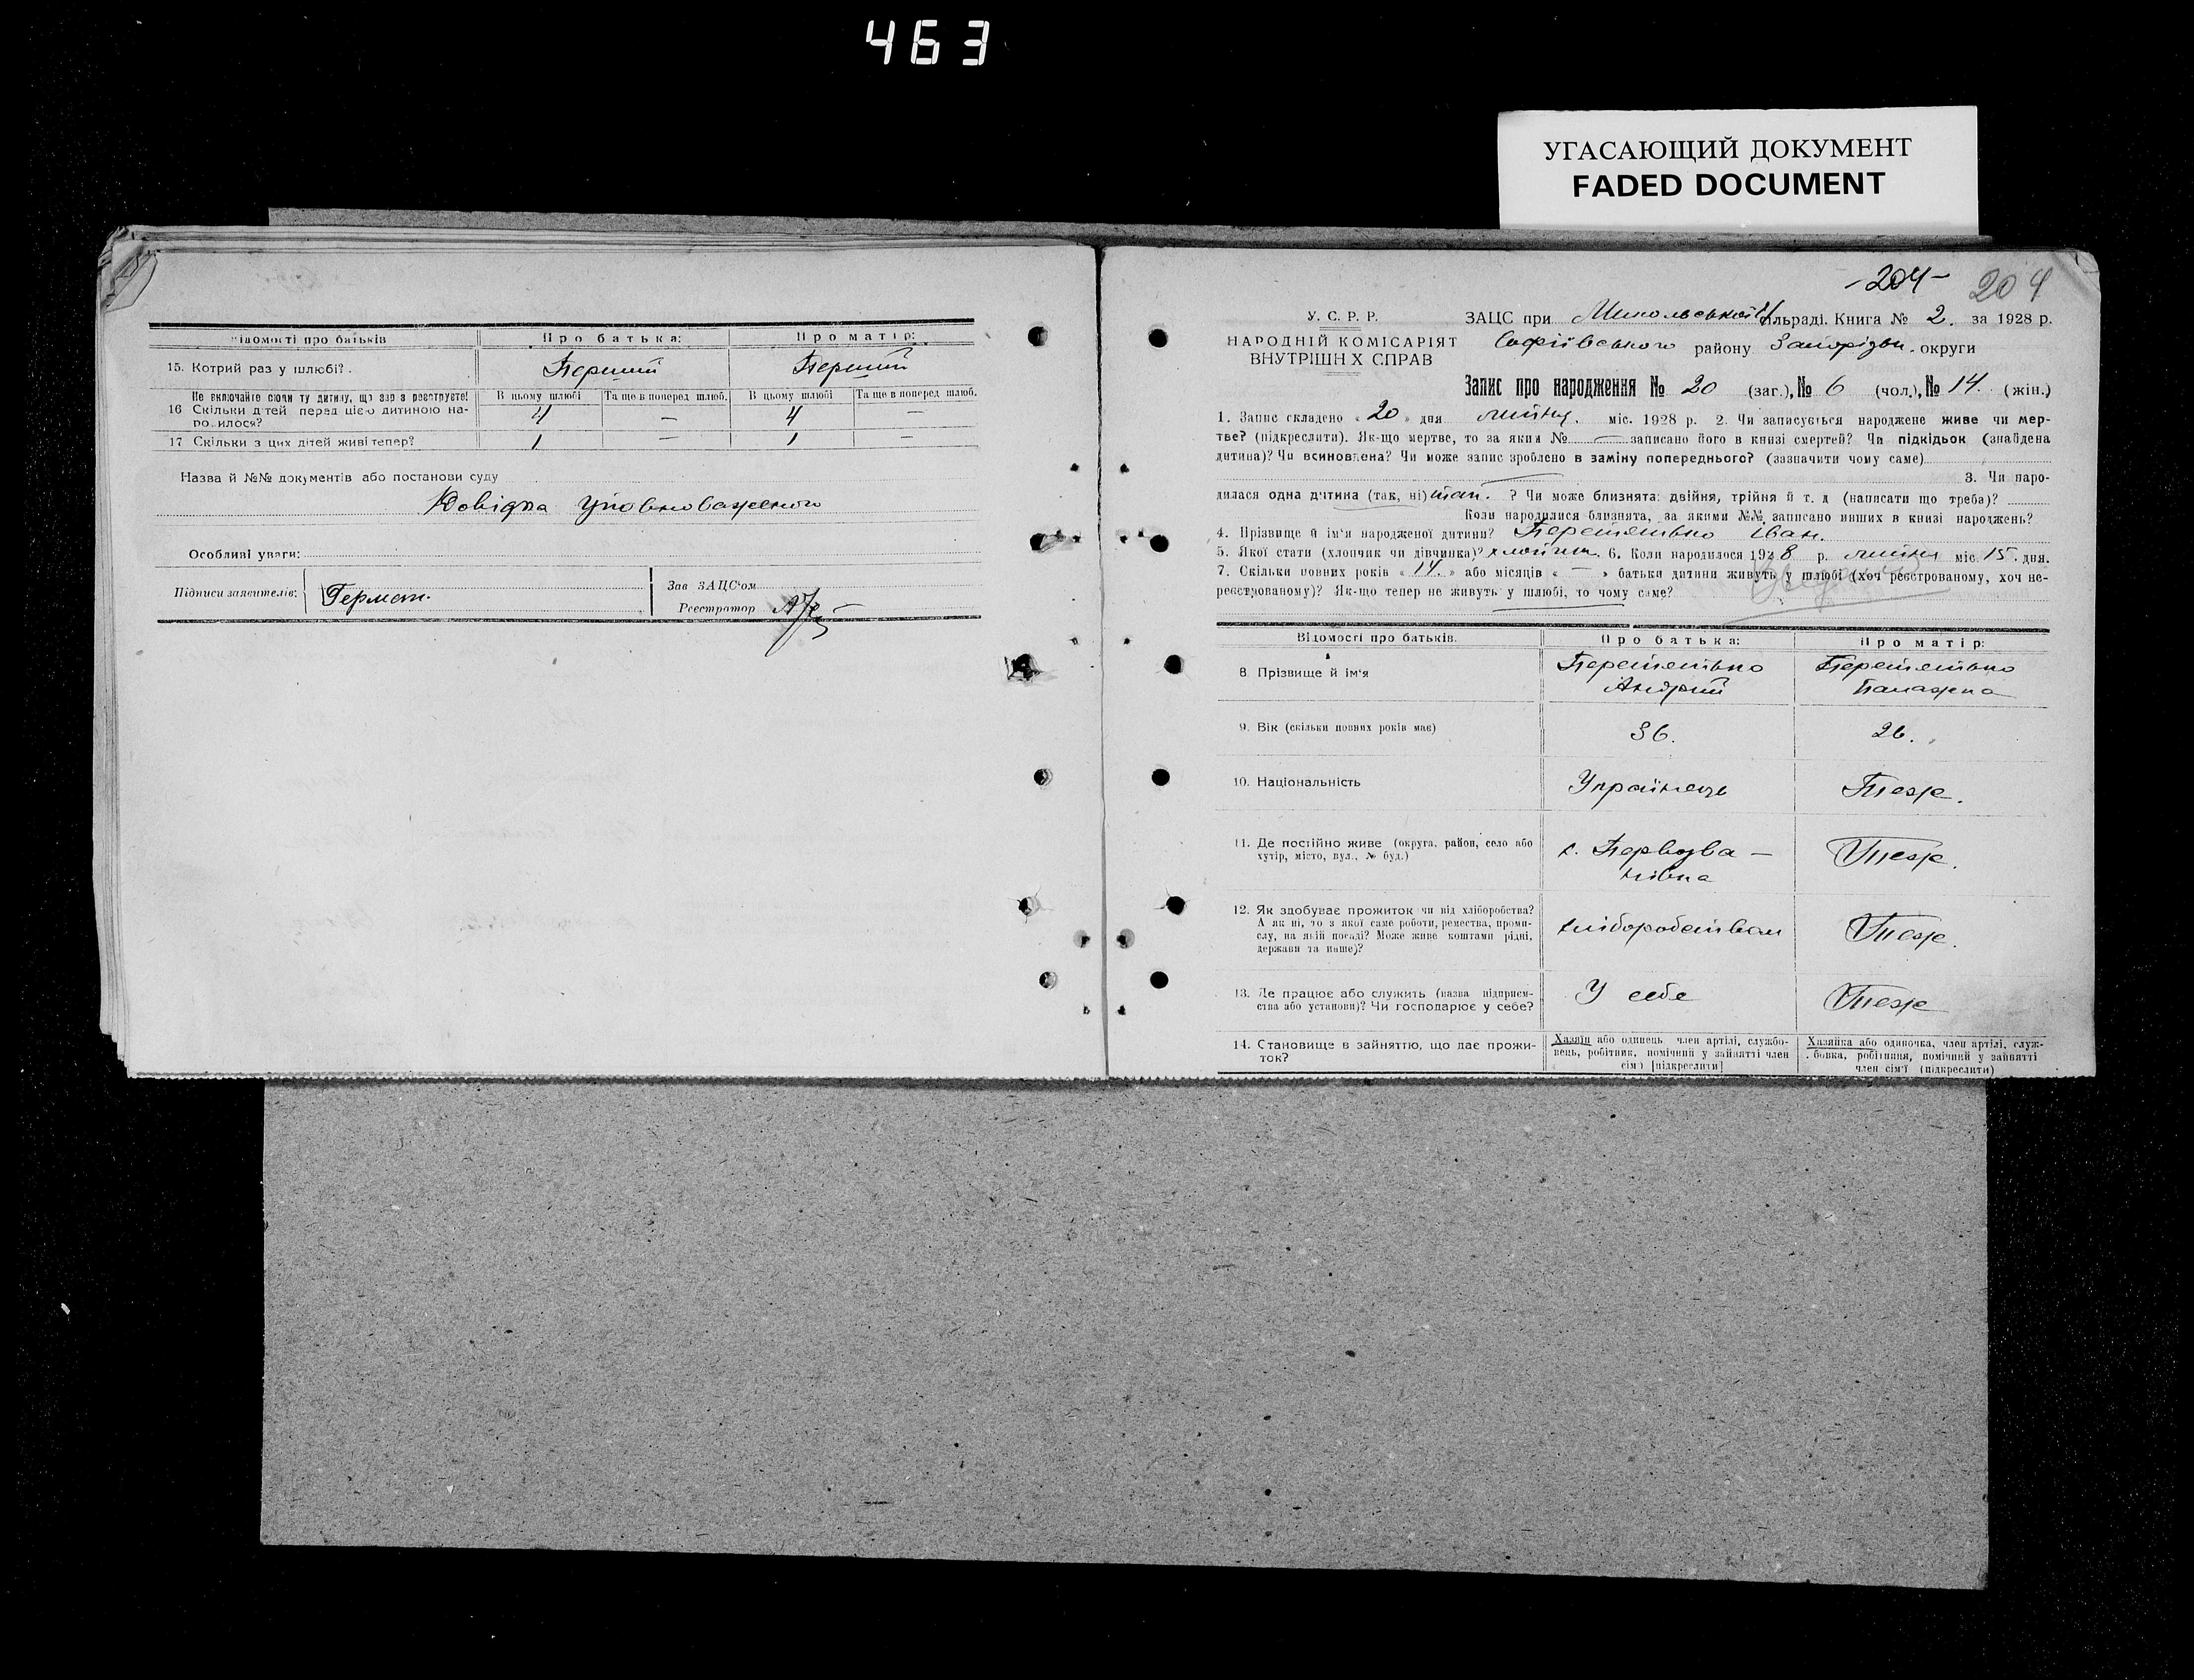 463
УГАСАЮЩИЙ ДОКУМЕНТ
FADED DOCUMENT
Відомості про батьків
Про батька:
Про матір:
15. Котрий раз у шлюбі?
Перший
Перший
Не включайте сюди ту дитину, що зар з реєструєте!
В цьому шлюбі
Та ще в поперед. шлюб.
В цьому шлюбі
Та ще в поперед. шлюб.
16 Скільки д тей перед цією дитиною на-
ро илося?
4
—
4
—
17 Скільки з цих дітей живі тепер?
1
—
1
—
Назва й №№ документів або постанови суду
Довідка Уповноваженого
Особливі уваги:
Підписи заявителів:
Зав ЗАЦС'ом
Реєстратор
-204-
204
У. С. Р. Р.
НАРОДНІЙ КОМІСАРІЯТ
ВНУТРІШН Х СПРАВ
ЗАЦС при Микольській сільраді. Книга № 2. за 1928 р.
Софіївського району Запорізьк. округи
Запис про народження № 20 (заг.), № 6 (чол.), № 14. (жін.)
1. Запис складено « 20 » дня липня. міс. 1928 р. 2. Чи записується народжене живе чи мер-
тве? (підкреслити). Як-що мертве, то за яким № — записано його в книзі смертей? Чи підкідьок (знайдена
дитина)? Чи всиновлена? Чи може запис зроблено в заміну попереднього? (зазначити чому саме)
3. Чи наро-
дилася одна дитина (так, ні) так. ? Чи може близнята: двійня, трійня й т. д (написати що треба)?
Коли народилися близнята, за якими №№ записано инших в книзі народжень?
4. Прізвище й ім'я народженої дитини? Перетятько Іван.
5. Якої стати (хлопчик чи дівчинка)? хлопчик. 6. Коли народилося 1928 р. липня міс. 15. дня.
7. Скільки повних років « 14. » або місяців « — » батьки дитини живуть у шлюбі (хоч реєстрованому, хоч не-
реєстрованому)? Як-що тепер не живуть у шлюбі, то чому саме?
Відомості про батьків.
Про батька:
Про матір:
8. Прізвище й ім'я
Перетятько
Андрій
Перетятько
Палажка
9. Вік (скільки повних років має)
36.
26.
10. Національність
Українець
Теж.
11. Де постійно живе (округа, район, село або
хутір, місто, вул., № буд.)
с. Первозва-
нівка
Теж.
12. Як здобуває прожиток чи від хліборобства?
А як ні, то з якої саме роботи, ремества, проми-
слу, на якій посаді? Може живе коштами рідні,
держави та инше)?
хліборобством
Теж.
13. Де працює або служить (назва підприєм-
ства або установи)? Чи господарює у себе?
У себе
Теж
14. Становище в зайняттю, що дає прожи-
ток?
Хазяїн або одинець член артілі, службо-
вець, робітник, помічний у зайнятті член
сім'ї [підкреслити]
Хазяйка або одиночка, член артілі, служ-
бовка, робітниця, помічний у зайнятті
член сім'ї (підкреслити)